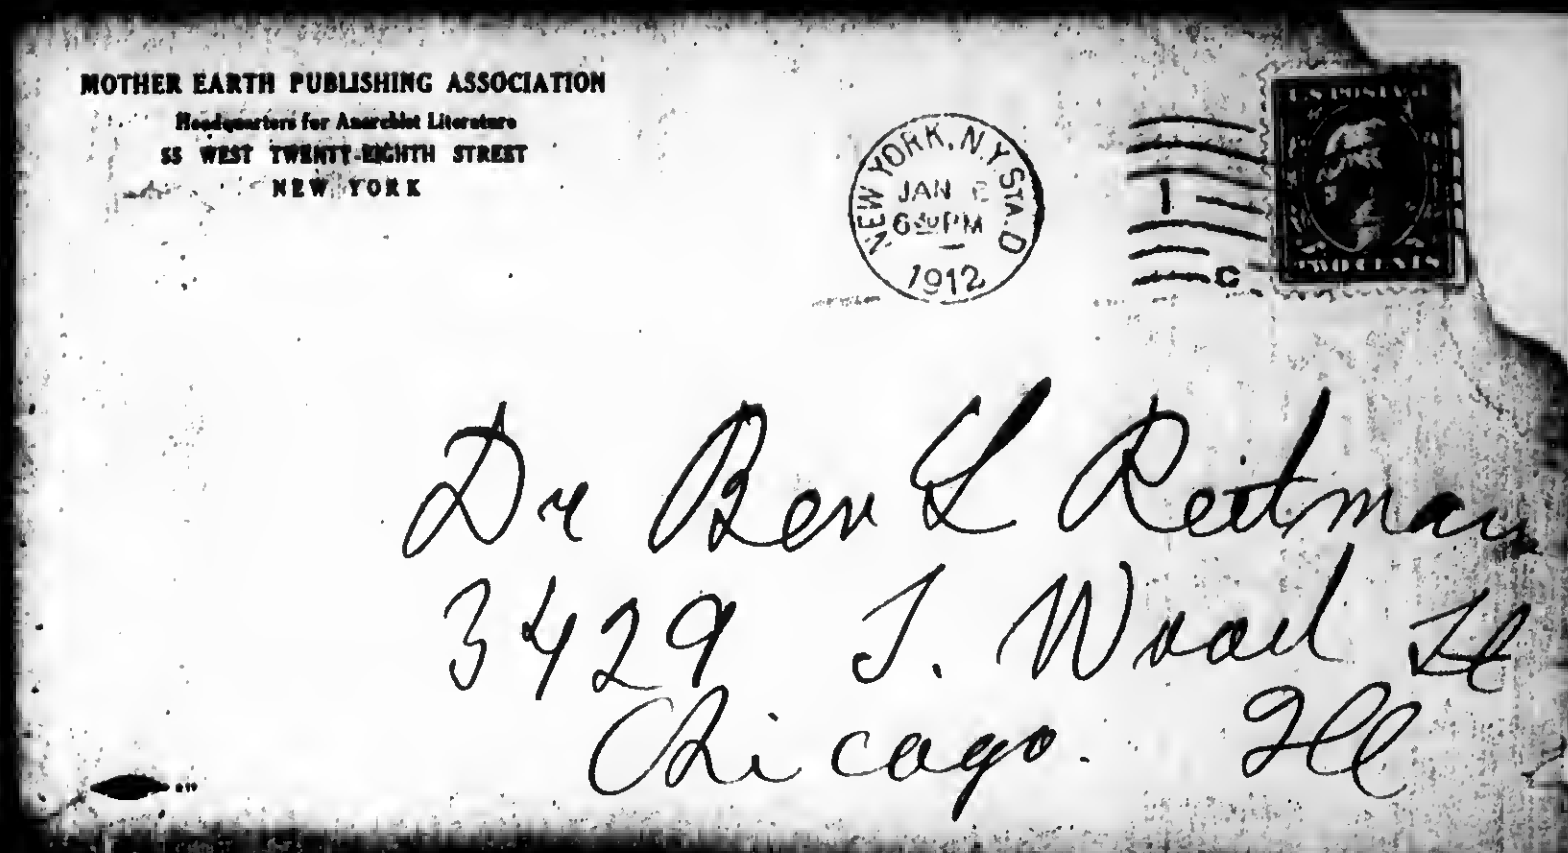 MOTHER EARTH PUBLISHING ASSOCIATION
Headquarters for Anarchist Literature
55 WEST TWENTY-EIGHTH STREET
NEW YORK
NEW YORK, N.Y. STA. D
JAN
6 30 PM
1912
1
C
U.S. POSTAGE
TWO CENTS
Dr Ben L Reitman
3429 S. Wood St
Chicago. Ill